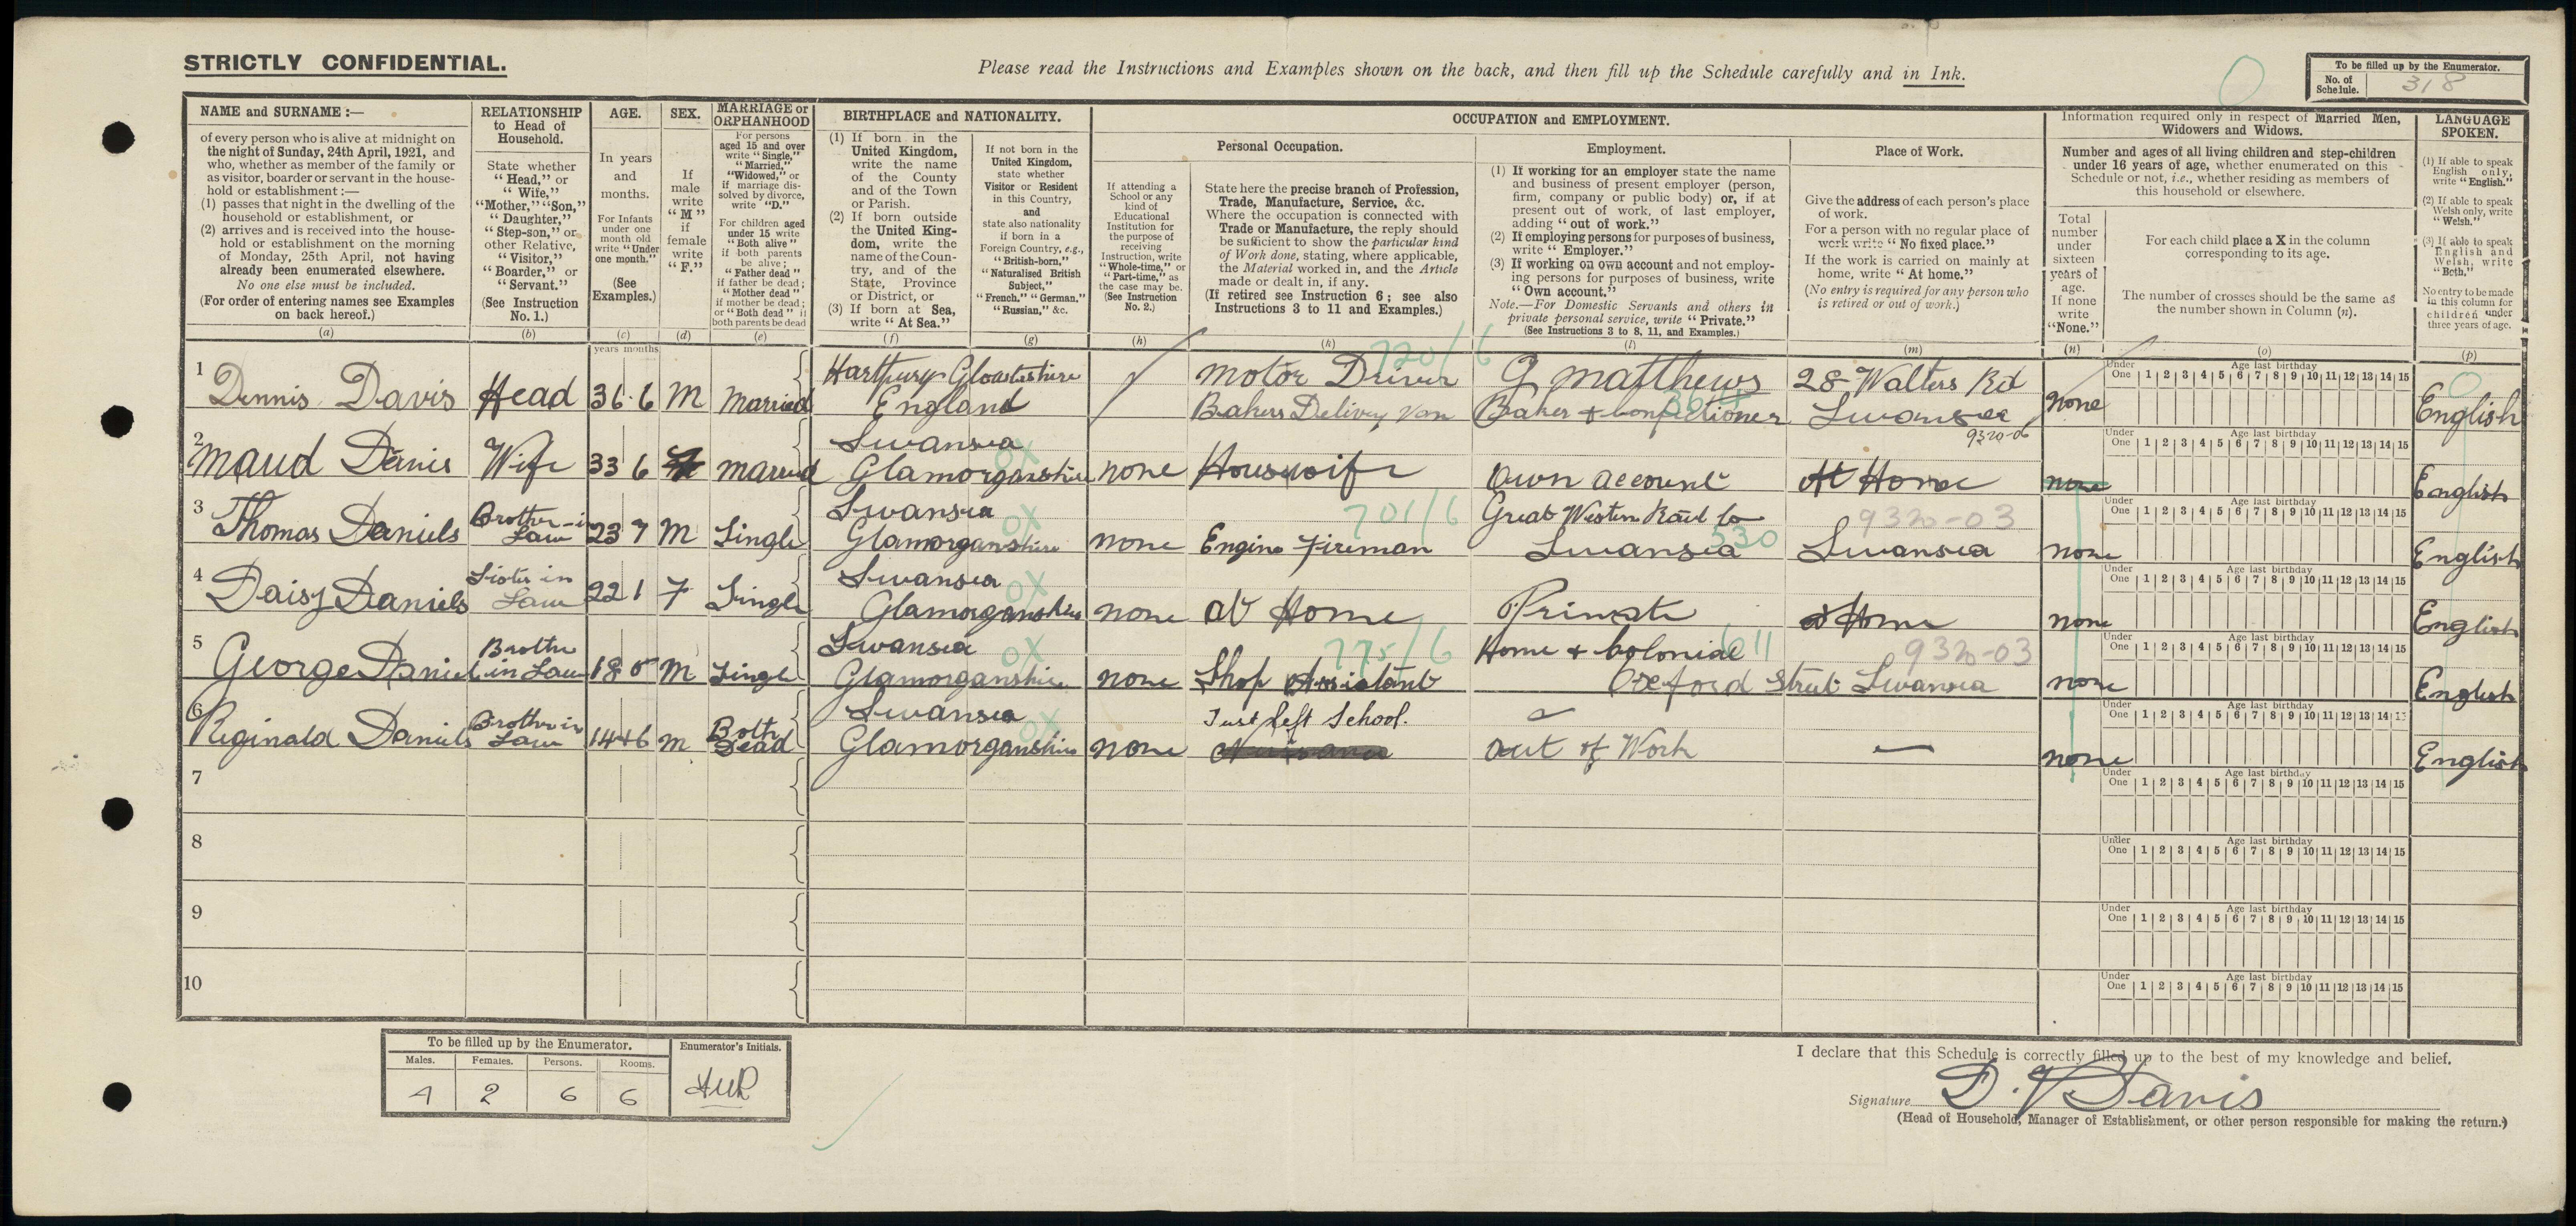 STRICTLY CONFIDENTIAL.
Please read the Instructions and Examples shown on the back, and then fill up the Schedule carefully and in Ink.
To be filled up by the Enumerator.
No. of Schedule. 318
NAME and SURNAME :—
of every person who is alive at midnight on
the night of Sunday, 24th April, 1921, and
who, whether as member of the family or
as visitor, boarder or servant in the house-
hold or establishment :—
(1) passes that night in the dwelling of the
household or establishment, or
(2) arrives and is received into the house-
hold or establishment on the morning
of Monday, 25th April, not having
already been enumerated elsewhere.
No one else must be included.
(For order of entering names see Examples
on back hereof.)
(a)
RELATIONSHIP
to Head of
Household.
State whether
"Head," or
"Wife,"
"Mother," "Son,"
"Daughter,"
"Step-son," or
other Relative,
"Visitor,"
"Boarder," or
"Servant."
(See Instruction
No. 1.)
(b)
AGE.
In years
and
months.
For Infants
under one
month old
write "Under
one month."
(See
Examples.)
(c)
SEX.
If
male
write
"M"
if
female
write
"F."
(d)
MARRIAGE or
ORPHANHOOD
For persons
aged 15 and over
write "Single,"
"Married,"
"Widowed," or
if marriage dis-
solved by divorce,
write "D."
For children aged
under 15 write
"Both alive"
if both parents
be alive;
"Father dead"
if father be dead;
"Mother dead"
if mother be dead;
or "Both dead" if
both parents be dead
(e)
BIRTHPLACE and NATIONALITY.
(1) If born in the
United Kingdom,
write the name
of the County
and of the Town
or Parish.
(2) If born outside
the United King-
dom, write the
name of the Coun-
try, and of the
State, Province
or District, or
(3) If born at Sea,
write "At Sea."
(f)
If not born in the
United Kingdom,
state whether
Visitor or Resident
in this Country,
and
state also nationality
if born in a
Foreign Country, e.g.,
"British-born,"
"Naturalised British
Subject,"
"French," "German,"
"Russian," &c.
(g)
OCCUPATION and EMPLOYMENT.
If attending a
School or any
kind of
Educational
Institution for
the purpose of
receiving
Instruction, write
"Whole-time," or
"Part-time," as
the case may be.
(See Instruction
No. 2.)
(h)
Personal Occupation.
State here the precise branch of Profession,
Trade, Manufacture, Service, &c.
Where the occupation is connected with
Trade or Manufacture, the reply should
be sufficient to show the particular kind
of Work done, stating, where applicable,
the Material worked in, and the Article
made or dealt in, if any.
(If retired see Instruction 6; see also
Instructions 3 to 11 and Examples.)
(k)
Employment.
(1) If working for an employer state the name
and business of present employer (person,
firm, company or public body) or, if at
present out of work, of last employer,
adding "out of work."
(2) If employing persons for purposes of business,
write "Employer."
(3) If working on own account and not employ-
ing persons for purposes of business, write
"Own account."
Note.—For Domestic Servants and others in
private personal service, write "Private."
(See Instructions 3 to 8, 11, and Examples.)
(l)
Place of Work.
Give the address of each person's place
of work.
For a person with no regular place of
work write "No fixed place."
If the work is carried on mainly at
home, write "At home."
(No entry is required for any person who
is retired or out of work.)
(m)
Information required only in respect of Married Men,
Widowers and Widows.
Number and ages of all living children and step-children
under 16 years of age, whether enumerated on this
Schedule or not, i.e., whether residing as members of
this household or elsewhere.
Total
number
under
sixteen
years of
age.
If none
write
"None."
(n)
For each child place a X in the column
corresponding to its age.
The number of crosses should be the same as
the number shown in Column (n).
(o)
LANGUAGE
SPOKEN.
(1) If able to speak
English only,
write "English."
(2) If able to speak
Welsh only, write
"Welsh."
(3) If able to speak
English and
Welsh, write
"Both."
No entry to be made
in this column for
children under
three years of age.
(p)
years months
Under One 1 2 3 4 5 6 7 8 9 10 11 12 13 14 15
Age last birthday
1 Dennis Davis Head 36 6 M Married Hartpury Gloucestshire England Motor Driver Bakers Delivery Van G Matthews Baker + Confectioner 28 Walters Rd Swansea none English
720/6
9320-06
2 Maud Davis Wife 33 6 Married Swansea Glamorganshire none Housewife own account At Home none English
3 Thomas Daniels Brother-in Law 23 7 M Single Swansea Glamorganshire none Engine Fireman Great Western Rail Co Swansea Swansea none English
701/6 530 9320-03
4 Daisy Daniels Sister in Law 22 1 F Single Swansea Glamorganshire none at Home Private at Home none English
5 George Daniel Brother in Law 18 5 M Single Swansea Glamorganshire none Shop Assistant Home + Colonial Oxford Street Swansea none English
775/6 611 9320-03
6 Reginald Daniels Brother in Law 14 6 M Both Dead Swansea Glamorganshire none Just left School. out of Work — none English
7
8
9
10
To be filled up by the Enumerator.
Males. Females. Persons. Rooms.
4 2 6 6
Enumerator's Initials.
I declare that this Schedule is correctly filled up to the best of my knowledge and belief.
Signature D. V Davis
(Head of Household, Manager of Establishment, or other person responsible for making the return.)